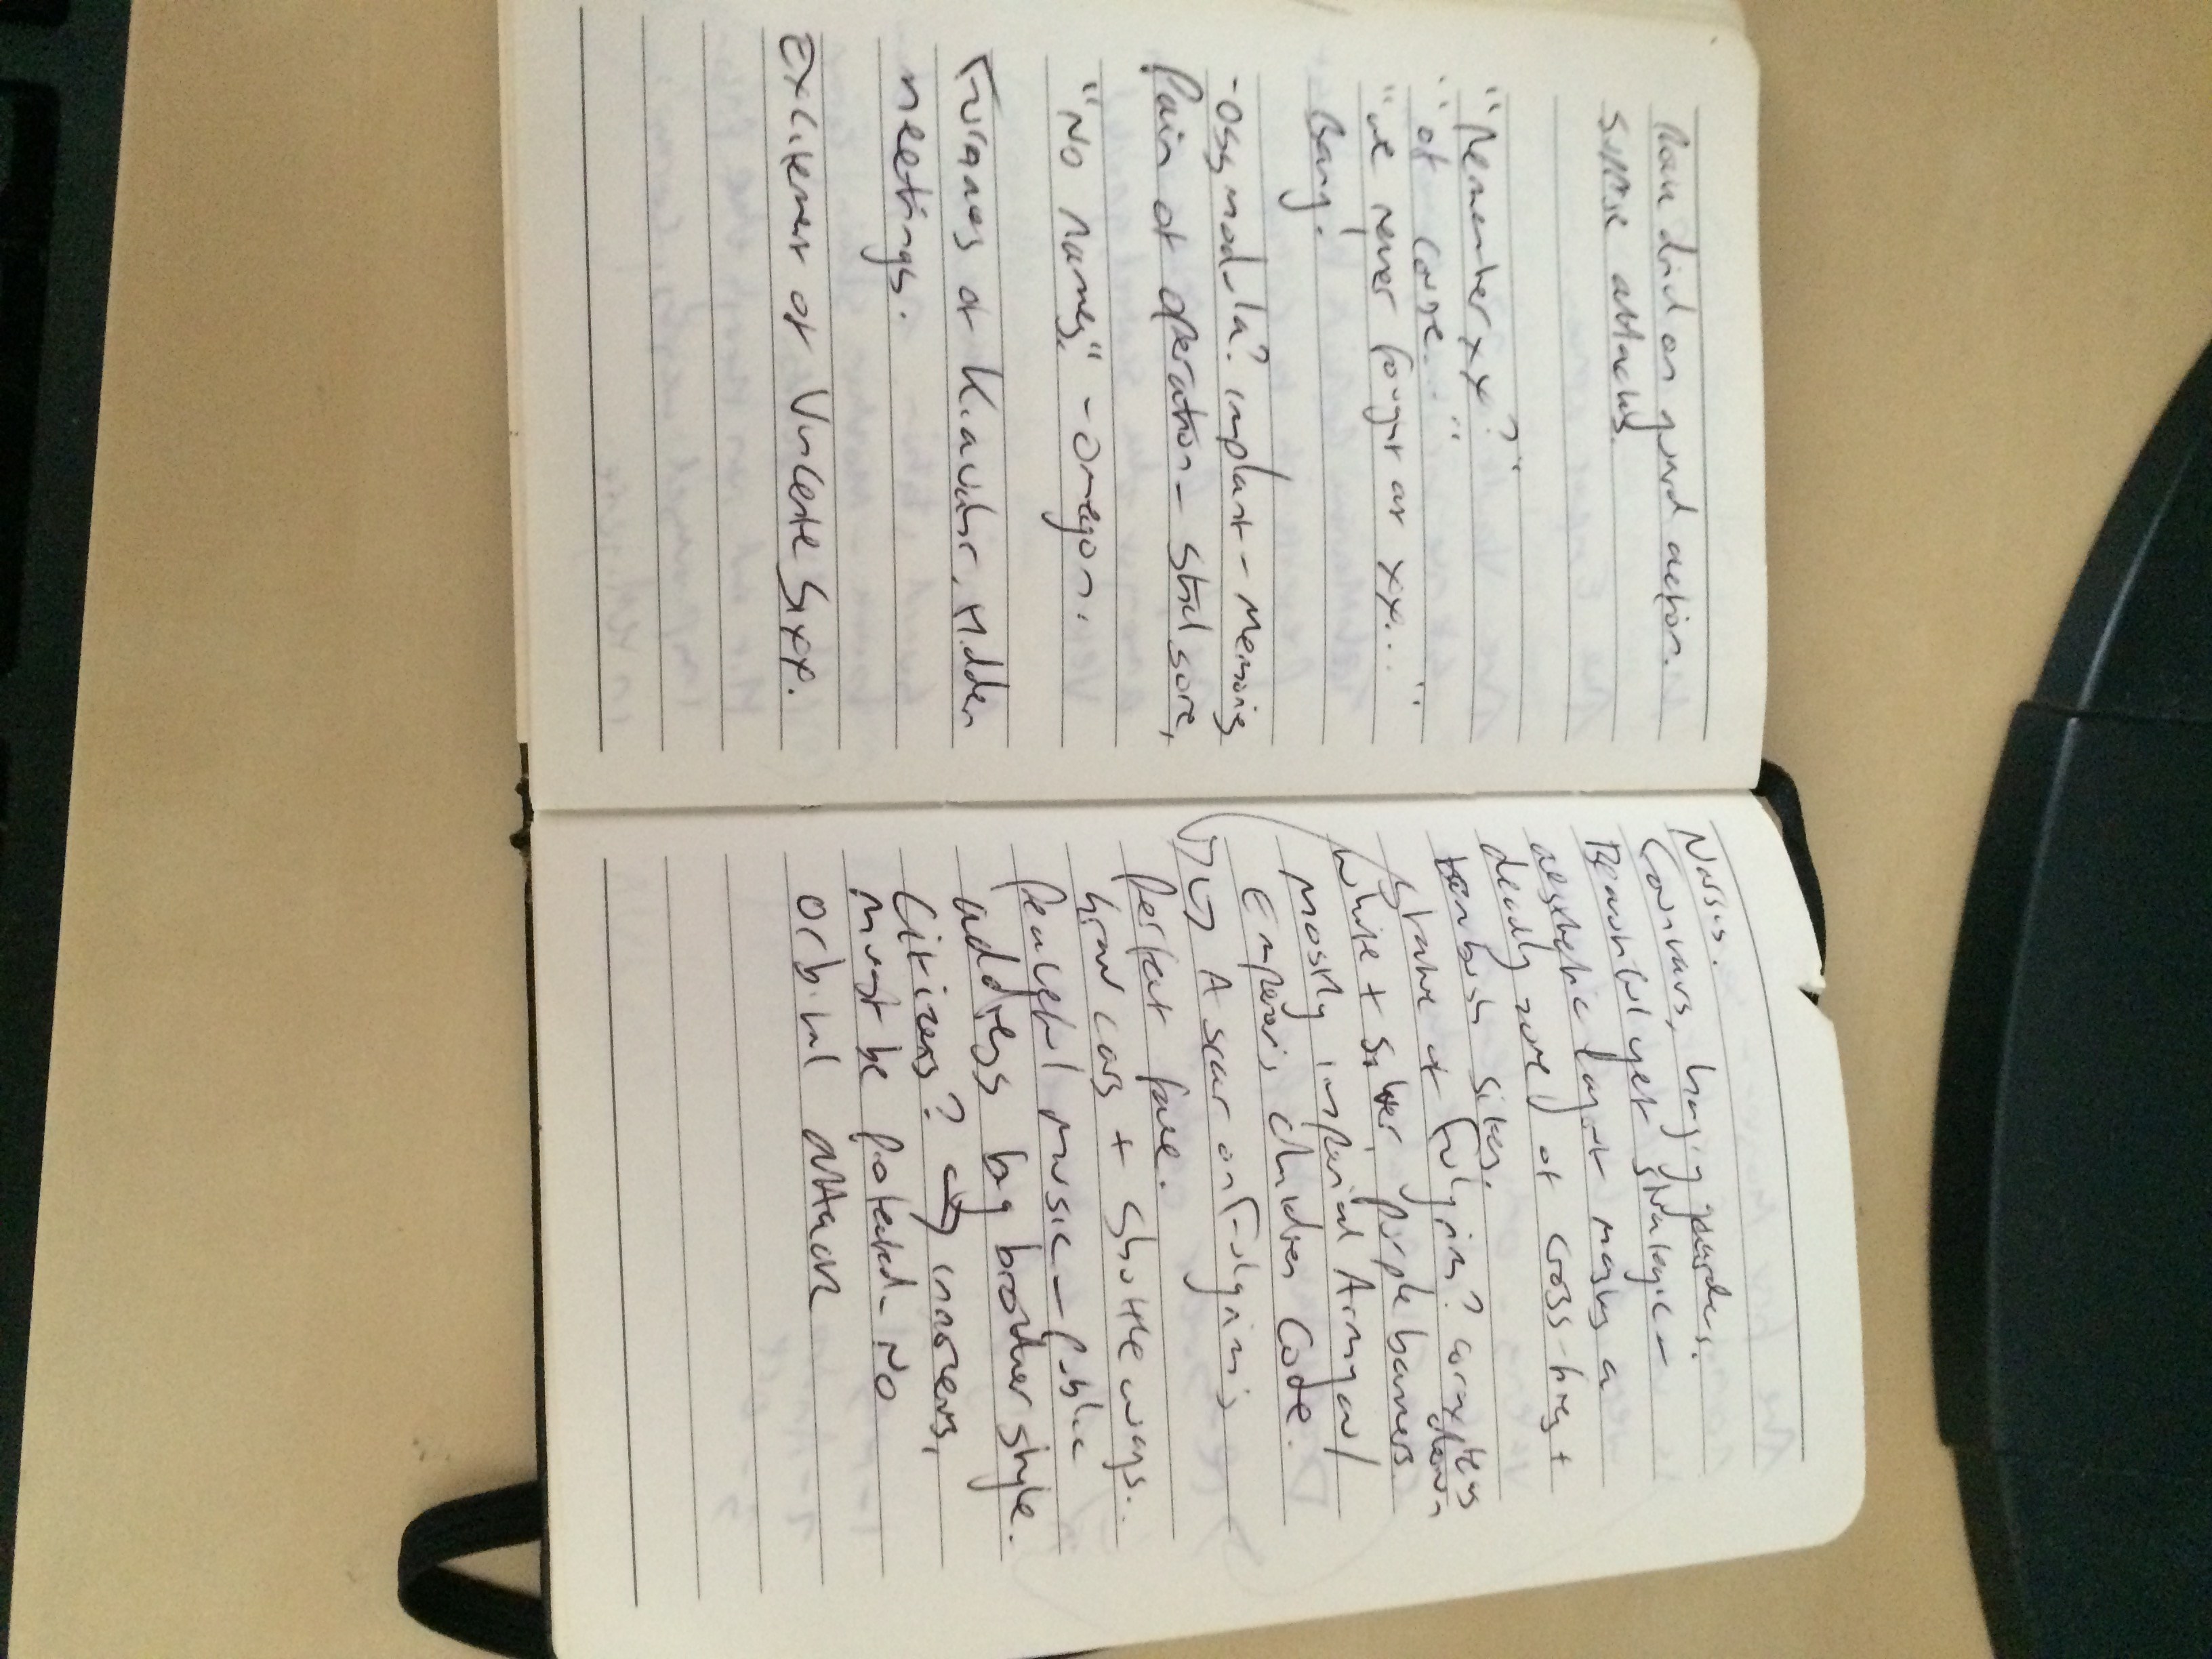 drill on guard action.
surprise attacks.
"Remember xx?"
"of course..."
"we never fought at xx..."
Bang.
- Ossmodula? implant - memories
Pain of operation - still sore,
"No names." - Omegon.
Furgnes of K.avahr, hidden
meetings.
Excitement of Vincente Sixx.
Narsis.
Courtyards, hanging gardens.
Beautiful yet strategic -
aesthetic layout masks a
deadly zone of cross-fires +
ambush sites.
Statue of Fulgrim? Corax/Ferrus down
white + silver, purple banners
mostly imperial Army w/
Emperor's Children Code.
↳ A scar on Fulgrim's
perfect face.
Grav cars + shuttle ways..
Peaceful music - public
address big brother style.
Citizens? → innocents,
must be protected - No
orbital attack